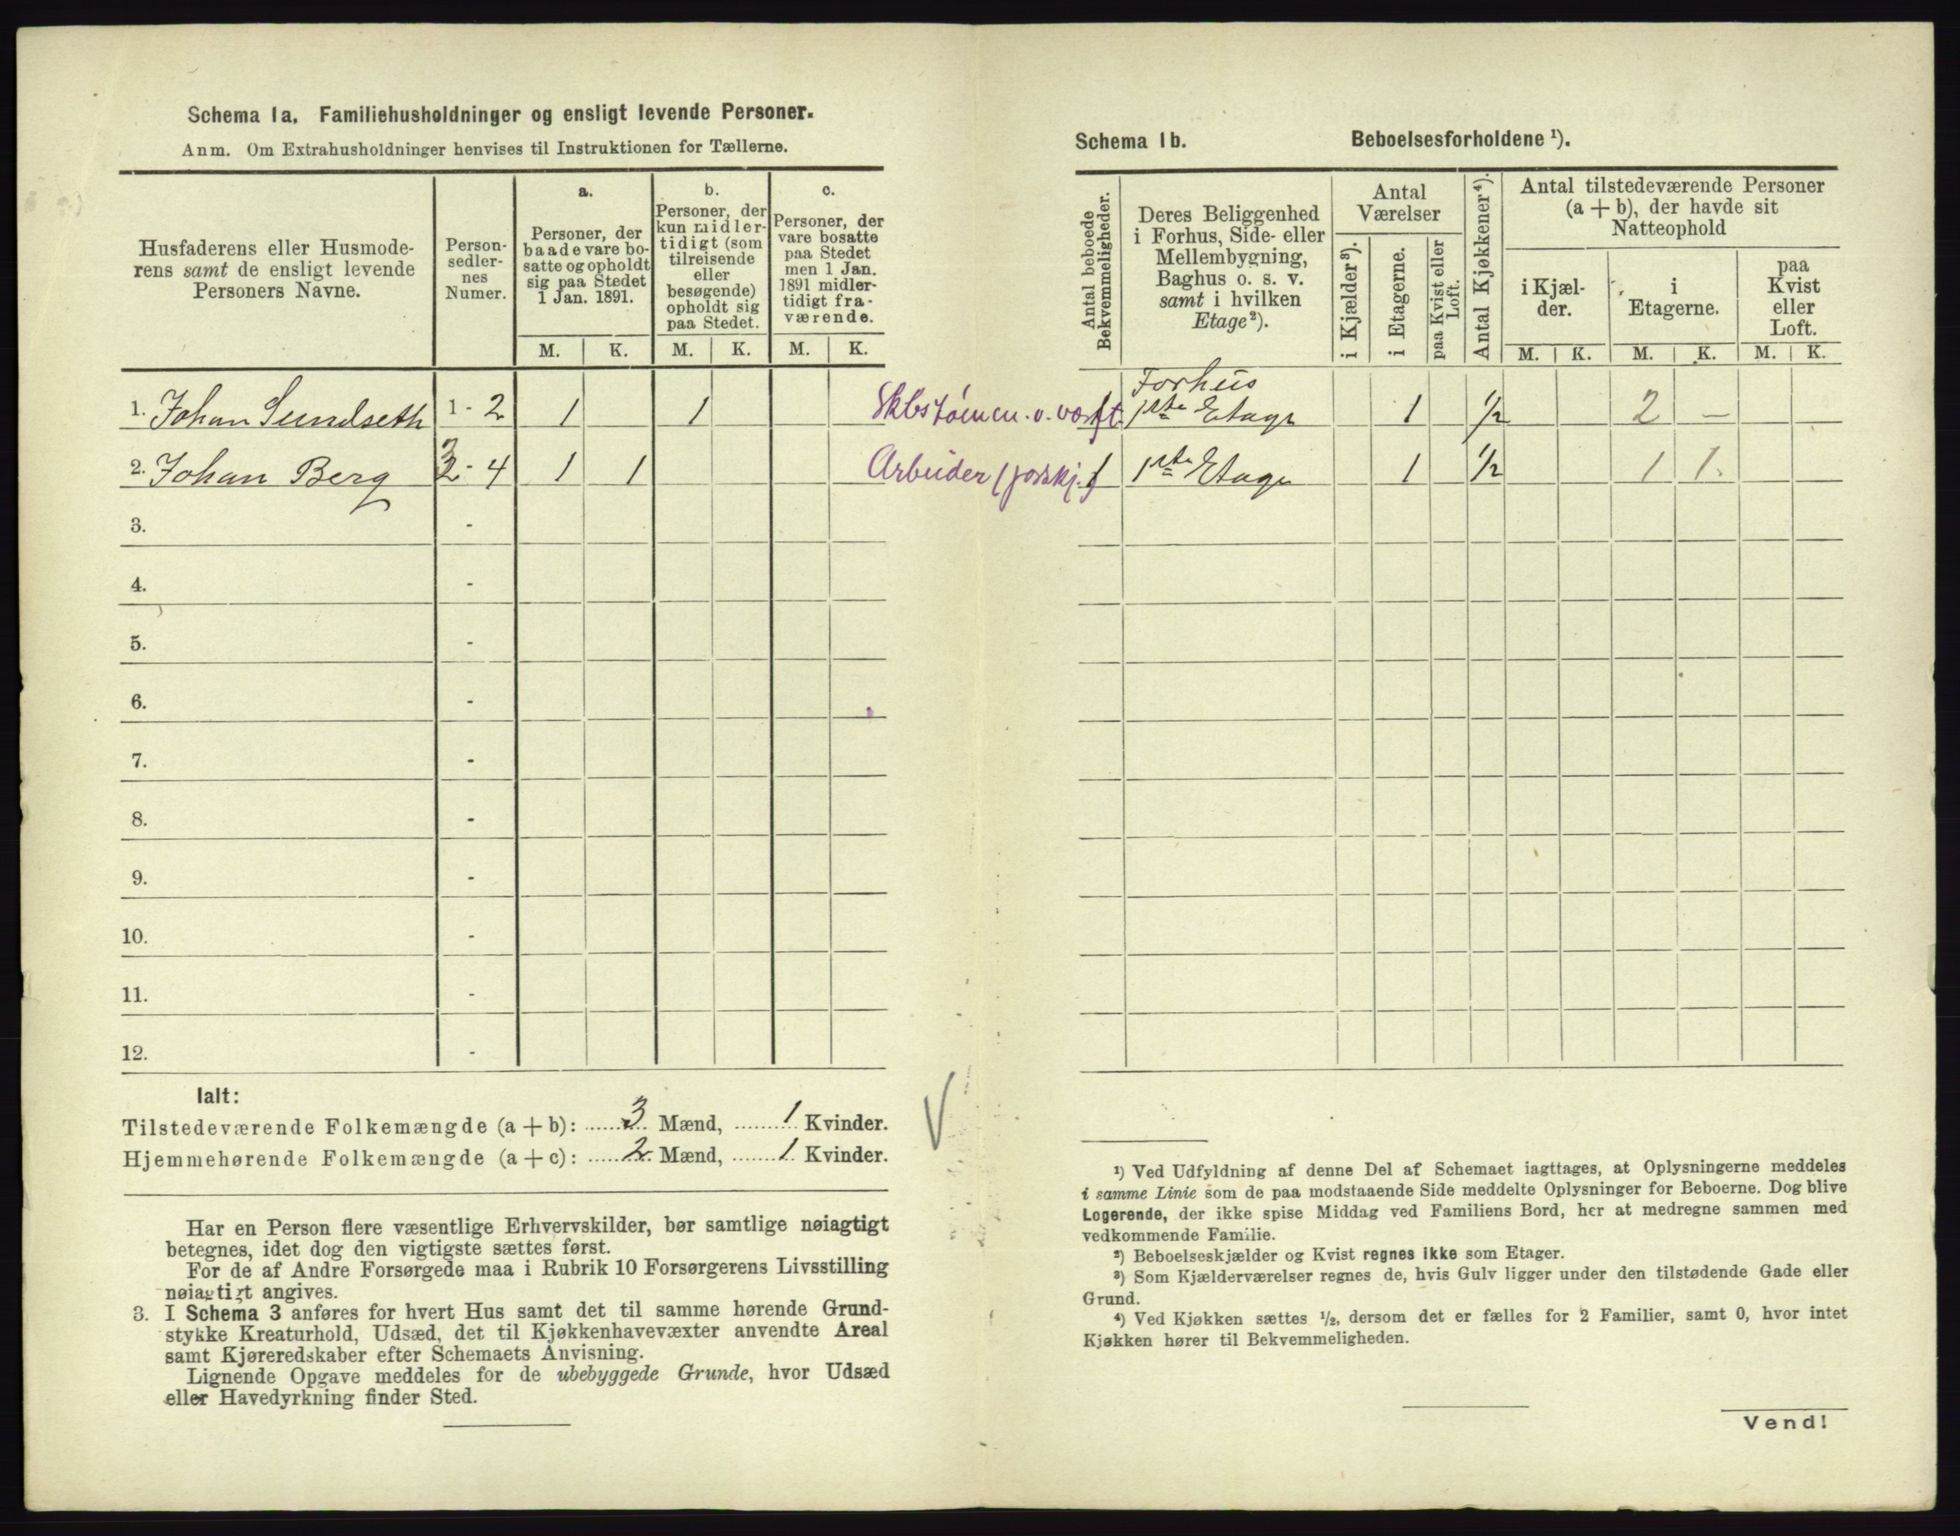 Schema 1a. Familiehusholdninger og ensligt levende Personer.
Anm. Om Extrahusholdninger henvises til Instruktionen for Tællerne.
Husfaderens eller Husmode-
rens samt de ensligt levende
Personers Navne.
Person-
sedler-
nes
Numer.
a.
Personer, der
baade vare bo-
satte og opholdt
sig paa Stedet
1 Jan. 1891.
b.
Personer, der
kun midler-
tidigt (som
tilreisende
eller
besøgende)
opholdt sig
paa Stedet.
c.
Personer, der
vare bosatte
paa Stedet
men 1 Jan.
1891 midler-
tidigt fra-
værende.
M. K. M. K. M. K.
1. Johan Sundseth 1 - 2 1 1
2. Johan Berg 3 - 4 1 1
3. -
4. -
5. -
6. -
7. -
8. -
9. -
10. -
11. -
12. -
Ialt:
Tilstedeværende Folkemængde (a + b): 3 Mænd, 1 Kvinder.
Hjemmehørende Folkemængde (a + c): 2 Mænd, 1 Kvinder.
Har en Person flere væsentlige Erhvervskilder, bør samtlige nøiagtigt
betegnes, idet dog den vigtigste sættes først.
For de af Andre Forsørgede maa i Rubrik 10 Forsørgerens Livsstilling
nøiagtigt angives.
3. I Schema 3 anføres for hvert Hus samt det til samme hørende Grund-
stykke Kreaturhold, Udsæd, det til Kjøkkenhavevæxter anvendte Areal
samt Kjøreredskaber efter Schemaets Anvisning.
Lignende Opgave meddeles for de ubebyggede Grunde, hvor Udsæd
eller Havedyrkning finder Sted.
Schema 1b. Beboelsesforholdene ¹).
Antal beboede
Bekvemmeligheder.
Deres Beliggenhed
i Forhus, Side- eller
Mellembygning,
Baghus o. s. v.
samt i hvilken
Etage²).
Antal
Værelser
i Kjælder³).
i Etagerne.
paa Kvist eller
Loft.
Antal Kjøkkener⁴).
Antal tilstedeværende Personer
(a + b), der havde sit
Natteophold
i Kjæl-
der.
i
Etagerne.
paa
Kvist
eller
Loft.
M. K. M. K. M. K.
Forhus
Skbstømm. v. værft. 1 1ste Etage 1 1/2 2 —
Arbeider (jordskj.) 1 1ste Etage 1 1/2 1 1.
¹) Ved Udfyldning af denne Del af Schemaet iagttages, at Oplysningerne meddeles
i samme Linie som de paa modstaaende Side meddelte Oplysninger for Beboerne. Dog blive
Logerende, der ikke spise Middag ved Familiens Bord, her at medregne sammen med
vedkommende Familie.
²) Beboelseskjælder og Kvist regnes ikke som Etager.
³) Som Kjælderværelser regnes de, hvis Gulv ligger under den tilstødende Gade eller
Grund.
⁴) Ved Kjøkken sættes ½, dersom det er fælles for 2 Familier, samt 0, hvor intet
Kjøkken hører til Bekvemmeligheden.
Vend!